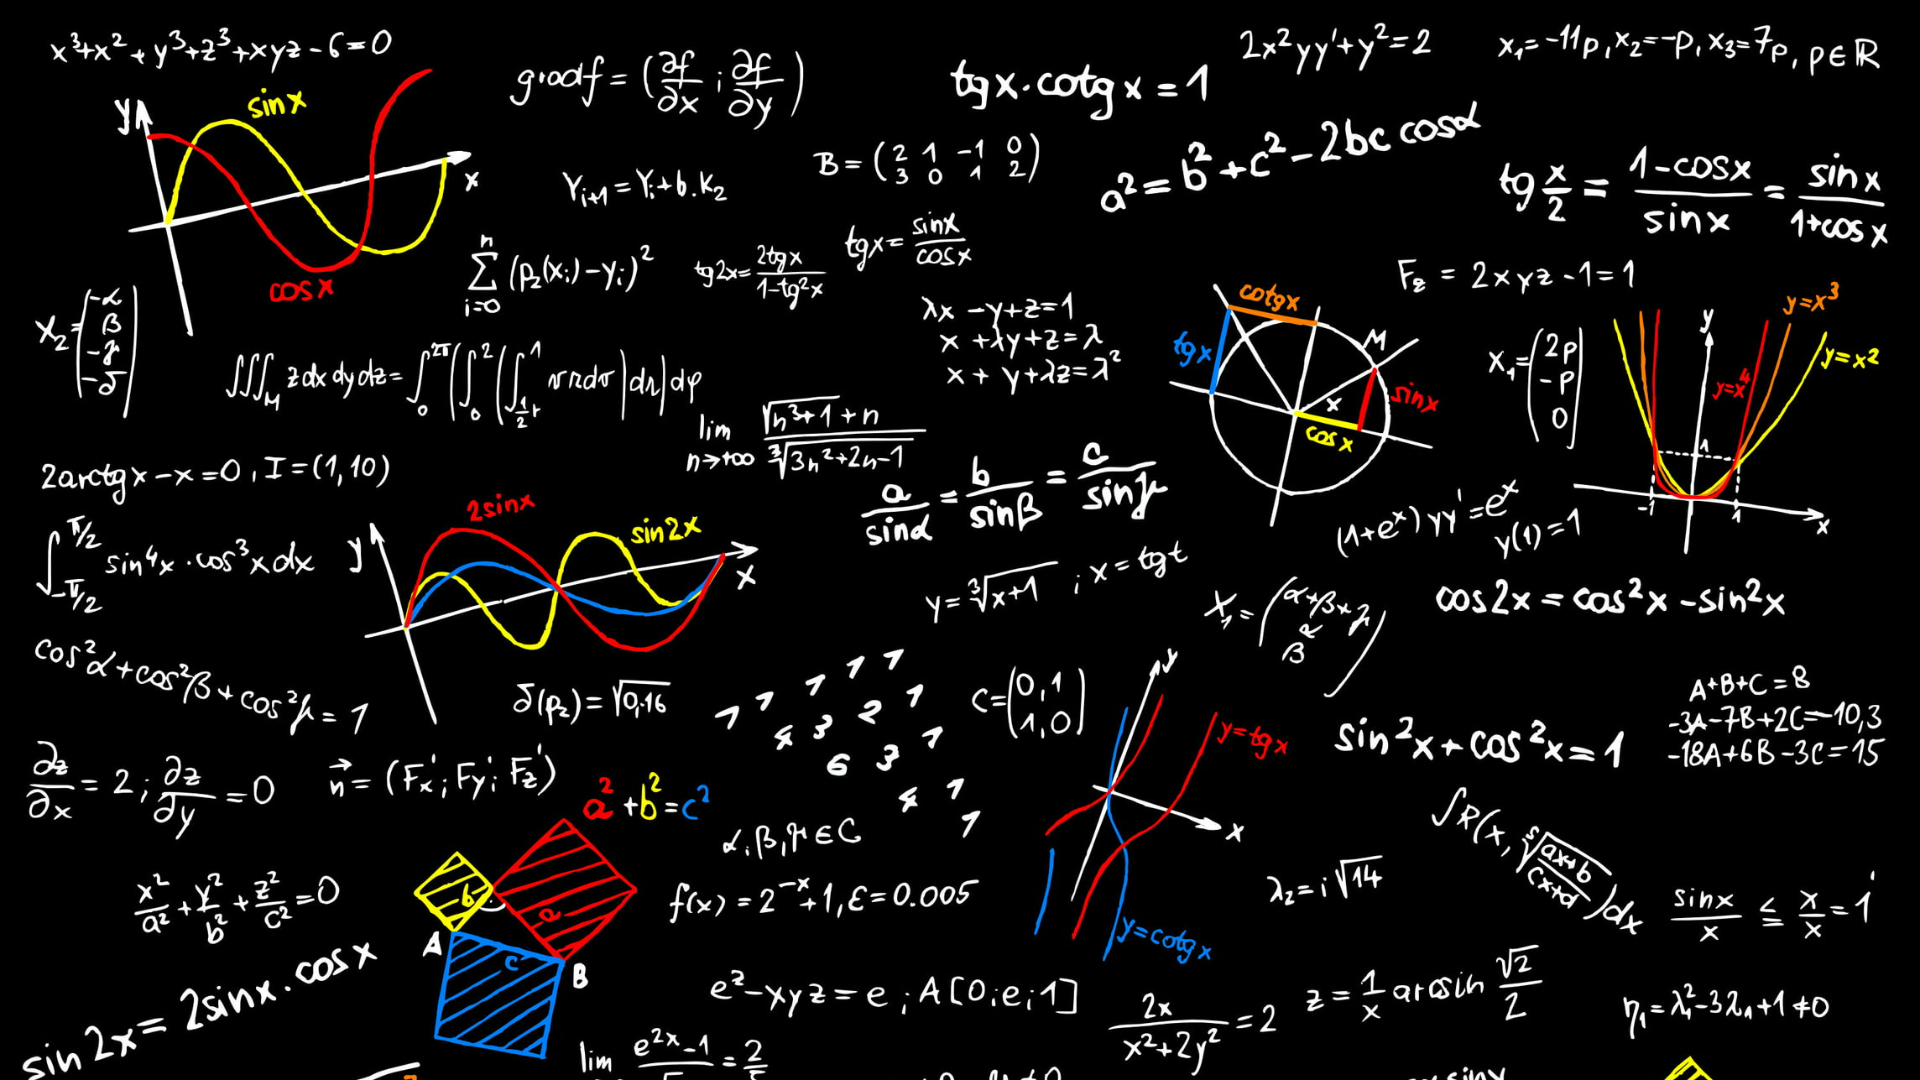 x³+x²+y³+z³+xyz-6=0
gradf = (∂f/∂x ; ∂f/∂y)
tgx·cotgx = 1
2x²yy'+y²=2
x₁=-11p, x₂=-p, x₃=7p, p∈ℝ
y
sinx
x
cosx
Yᵢ₊₁=Yᵢ+b.K₂
B = (2 1 -1 0
3 0 1 2)
a²=b²+c²-2bc cosα
tg x/2 = 1-cosx/sinx = sinx/1+cosx
∑ⁿᵢ₌₀ (p₂(xᵢ)-yᵢ)²
tg2x = 2tgx/1-tg²x
tgx = sinx/cosx
F₂ = 2xyz-1=1
X₂ = (-α
β
-γ
-δ)
∭_M z dx dy dz = ∫₀^2π (∫₀² (∫_½r^1 v r dv) dr) dφ
λx-y+z=1
x+λy+z=λ
x+y+λz=λ²
cotgx
tgx
M
x
sinx
cosx
X₁ = (2p
-p
0)
y
y=x³
y=x²
y=x⁴
1
-1
1
x
lim n→+∞ √(n³+1)+n / ∛(3n²+2n-1)
2arctgx-x=0, I=(1,10)
a/sinα = b/sinβ = c/sinγ
∫_-π/2^π/2 sin⁴x·cos³x dx
y
2sinx
sin2x
x
(1+eˣ)yy'=eˣ
y(1)=1
y=∛(x+1) ; x=tgt
X₁ = (α+β+γ
α
β)
cos2x=cos²x-sin²x
cos²α+cos²β+cos²γ=1
δ(p₂)=√0,16
1 1 1 1 1
4 3 2 1
6 3 1
4 1
1
C = (0,1
1,0)
y
y=tgx
x
y=cotgx
sin²x+cos²x=1
A+B+C=8
-3A-7B+2C=-10,3
-18A+6B-3C=15
∂z/∂x = 2 ; ∂z/∂y = 0
n⃗ = (Fx'; Fy'; Fz')
a²+b²=c²
α,β,γ∈C
∫R(x, ⁵√(ax+b/cx+d))dx
x²/a²+y²/b²+z²/c²=0
b
a
A
c
B
f(x)=2⁻ˣ+1, ε=0.005
λ₂=i√14
sinx/x ≤ x/x = 1
sin2x=2sinx·cosx
e²-xyz=e ; A[0;e;1]
2x/x²+2y²=2
z=1/x arcsin √2/2
η₁=λ₁²-3λ₁+1≠0
lim e²ˣ-1